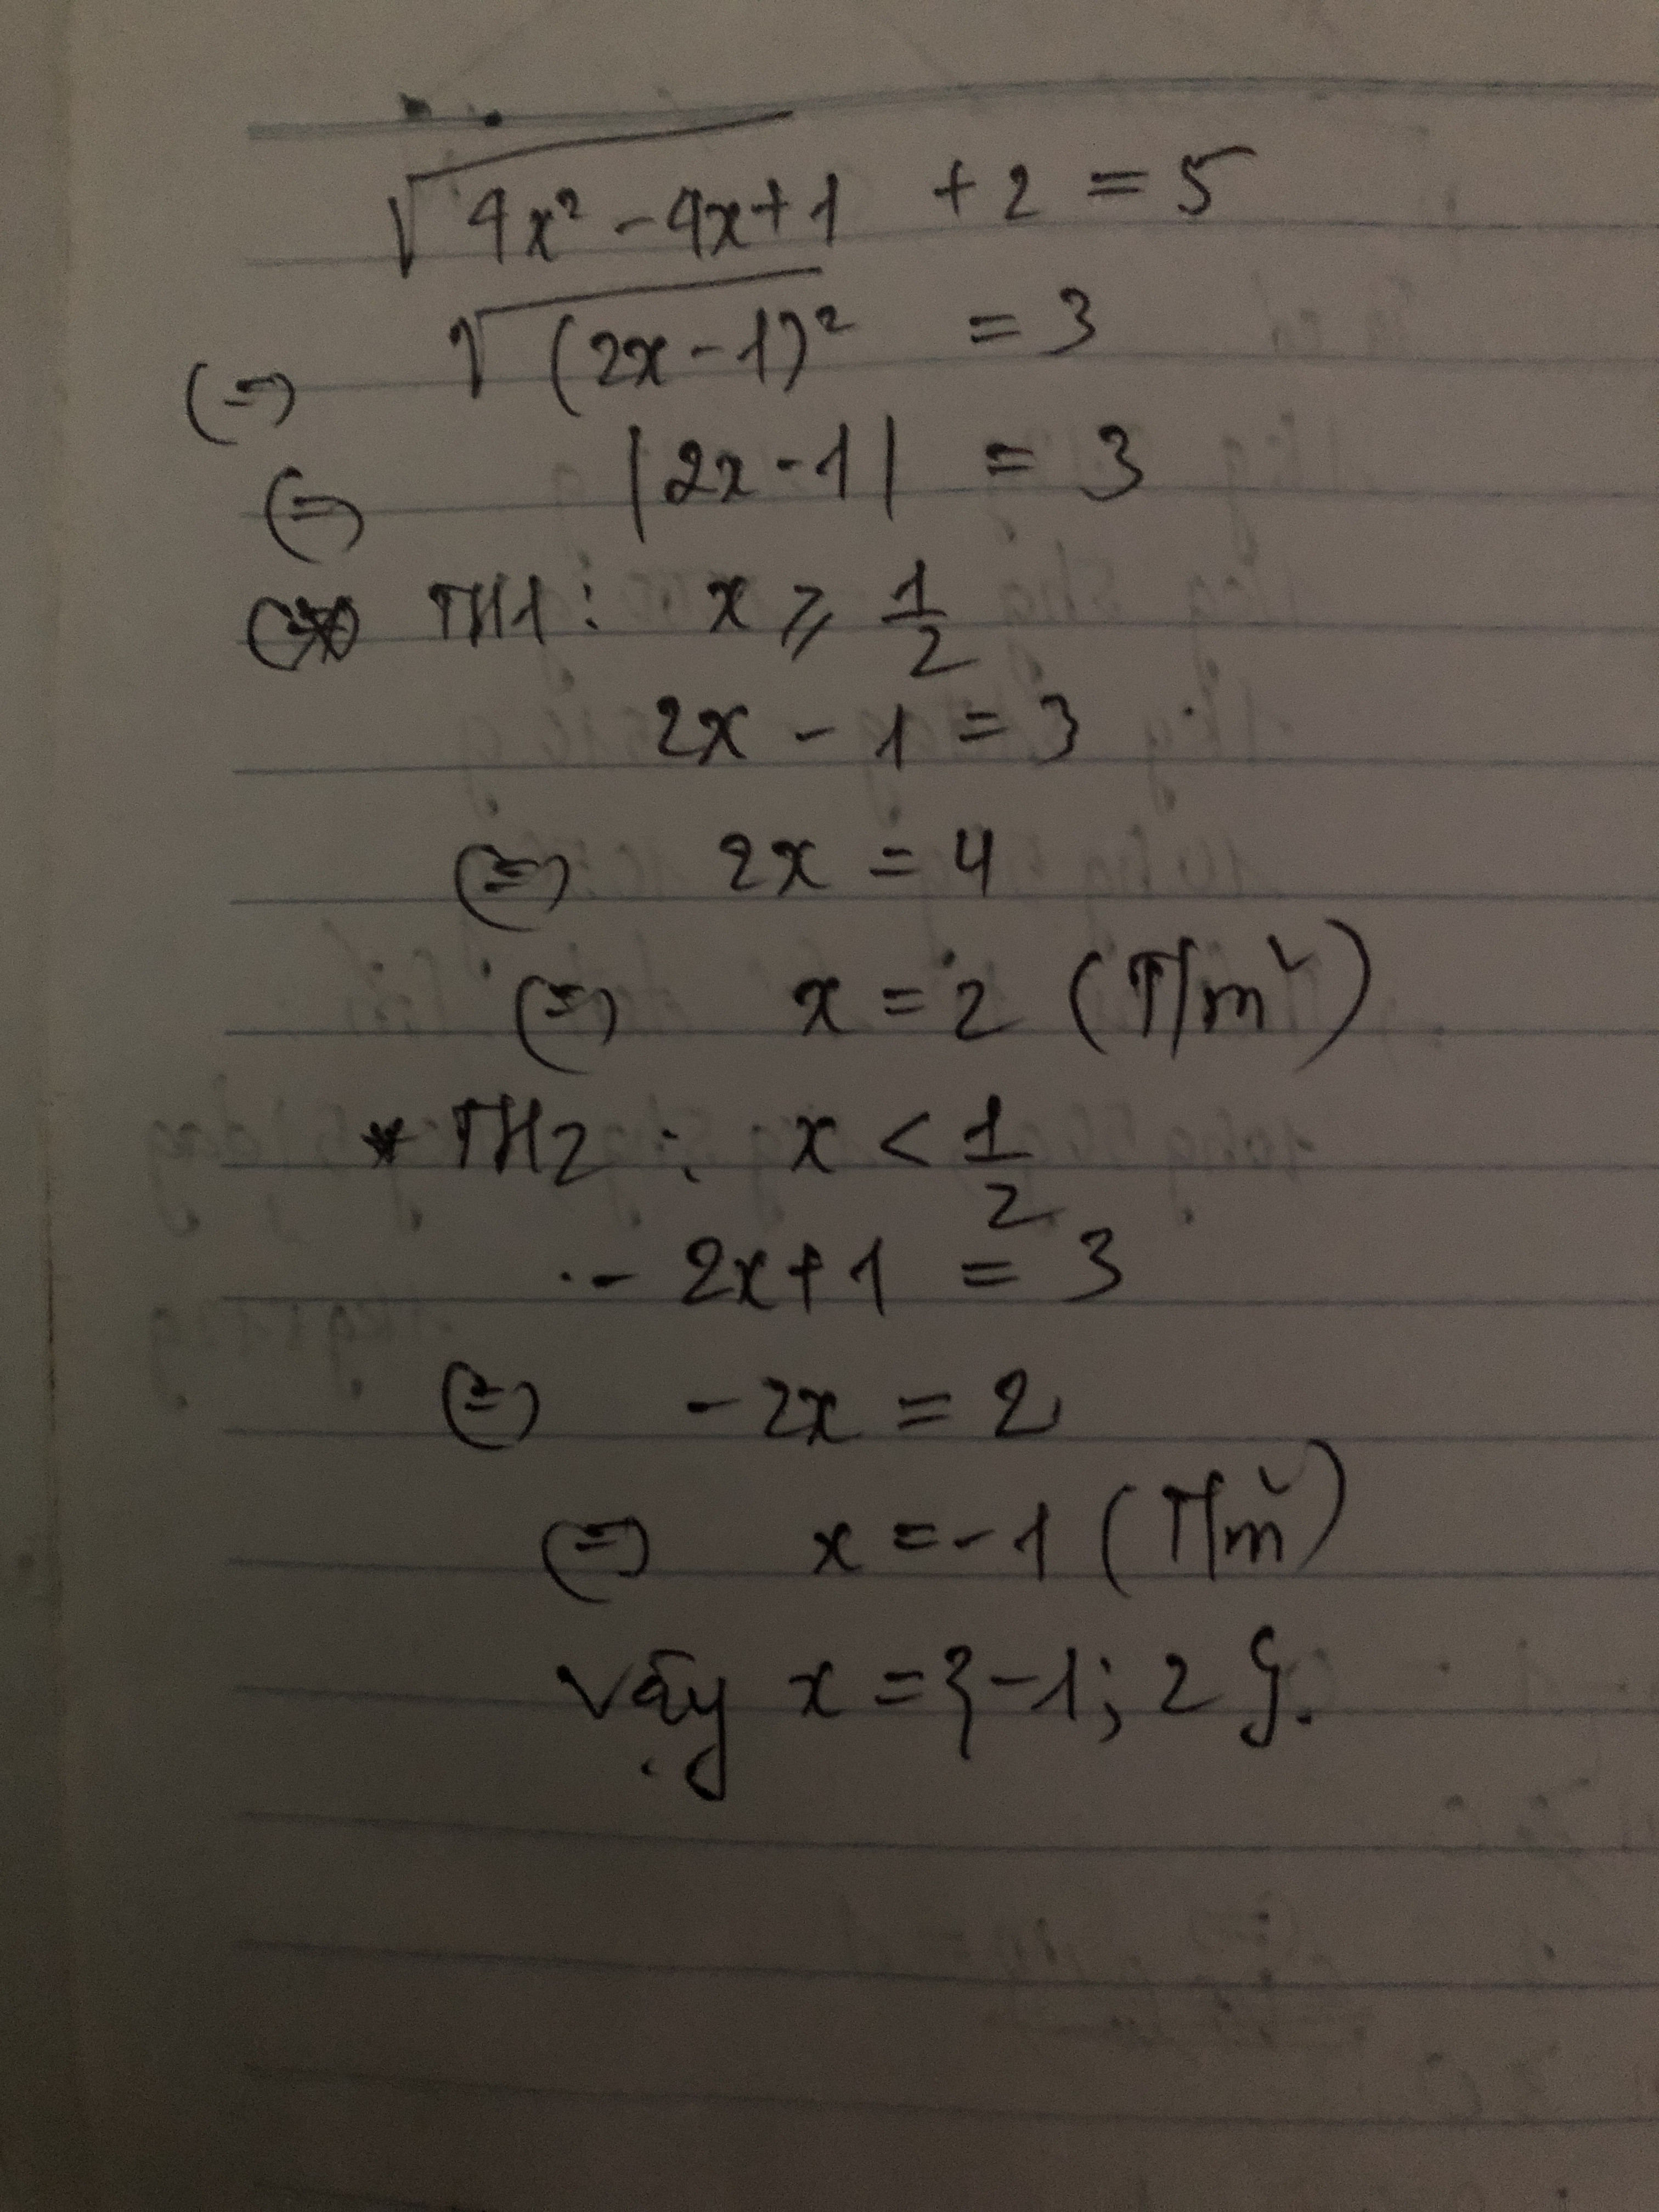 √(4x² - 4x + 1) + 2 = 5
(=) √((2x - 1)²) = 3
(=) |2x - 1| = 3
TH1 : x ⩾ 1/2
2x - 1 = 3
(=) 2x = 4
(=) x = 2 (T/m)
* TH2 : x < 1/2
- 2x + 1 = 3
(=) - 2x = 2
(=) x = - 1 (T/m)
Vậy x = {-1; 2}.